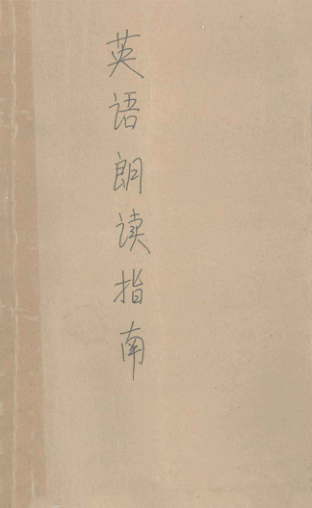 英语朗读指南